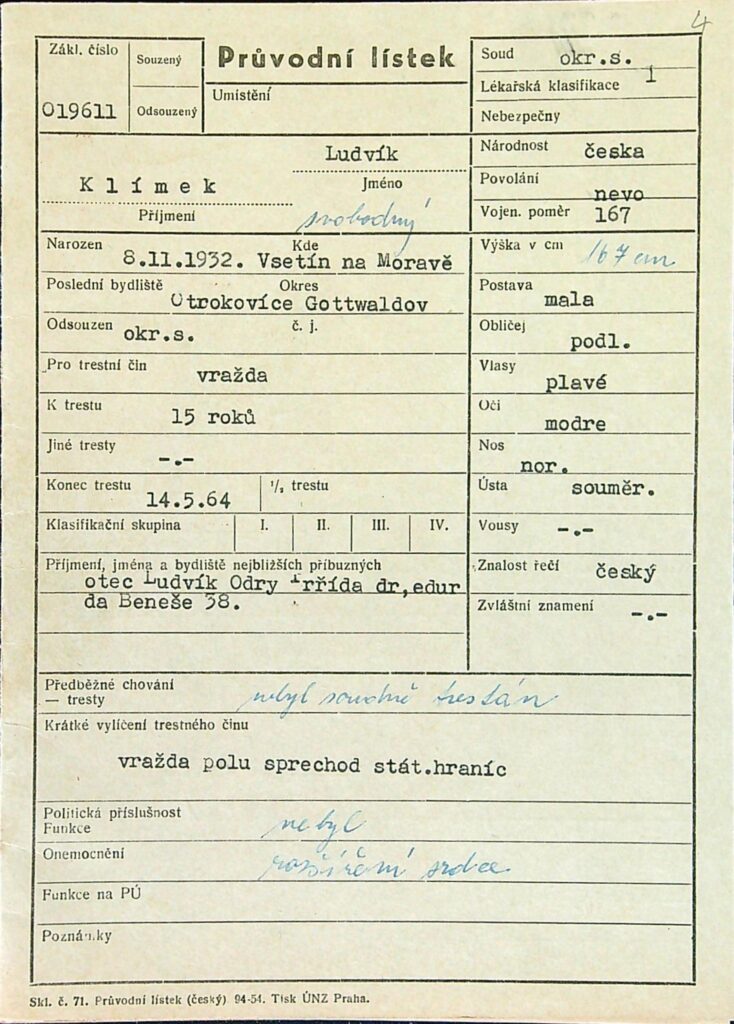 4
Zákl. číslo
019611
Souzený
Odsouzený
Průvodní lístek
Umístění
Soud okr.s.
Lékařská klasifikace 1
Nebezpečny
Ludvík
Jméno
Klímek
Příjmení
svobodný
Národnost česka
Povolání nevo
Vojen. poměr 167
Narozen Kde
8.11.1932. Vsetín na Moravě
Poslední bydliště Okres
Otrokovíce Gottwaldov
Odsouzen okr.s. č. j.
Pro trestní čin vražda
K trestu 15 roků
Jiné tresty -.-
Konec trestu 14.5.64 ½ trestu
Klasifikační skupina I. II. III. IV.
Příjmení, jména a bydliště nejbližších příbuzných
otec Ludvík Odry Trřída dr,edur
da Beneše 38.
Výška v cm 167 cm
Postava mala
Obličej podl.
Vlasy plavé
Oči modre
Nos nor.
Ústa souměr.
Vousy -.-
Znalost řečí český
Zvláštní znamení -.-
Předběžné chování
— tresty nebyl soudně trestán
Krátké vylíčení trestného činu
vražda polu sprechod stát.hraníc
Politická příslušnost
Funkce nebyl
Onemocnění rozšíření srdce
Funkce na PÚ
Poznámky
Skl. č. 71. Průvodní lístek (český) 94-54. Tisk ÚNZ Praha.